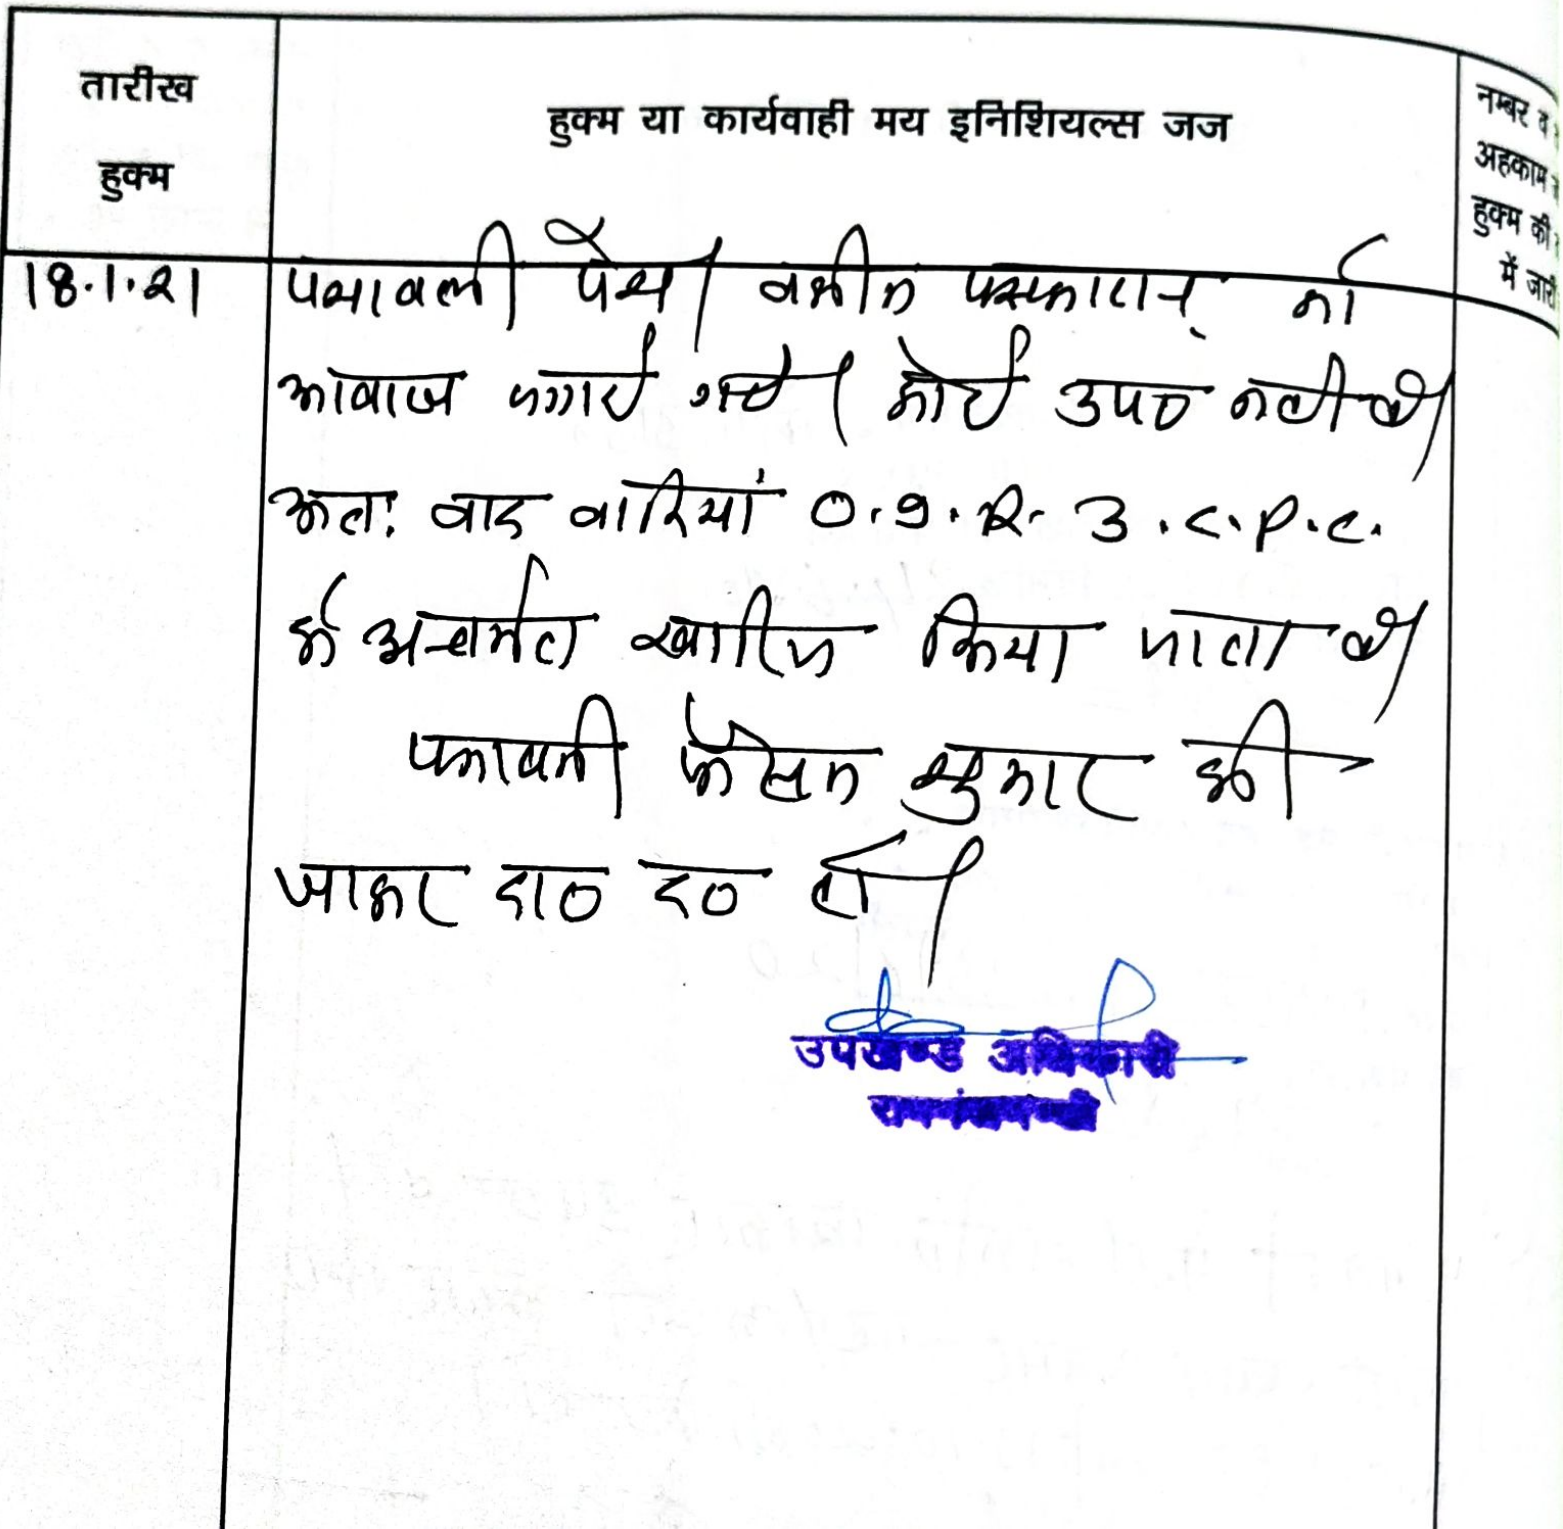 तारीख
हुक्म
हुक्म या कार्यवाही मय इनिशियल्स जज
नम्बर व
अहकाम
हुक्म की
में जारी
18.1.21
पत्रावली पेश। वकील पक्षकारान् को
आवाज लगाई गई। कोई उप० नही है।
अतः वाद वादियां O.9.R.3.C.P.C.
के अन्तर्गत खारिज किया जाता है।
पत्रावली फैसल शुमार की
जाकर दा० द० हो।
उपखण्ड अधिकारी
रामगंजमण्डी